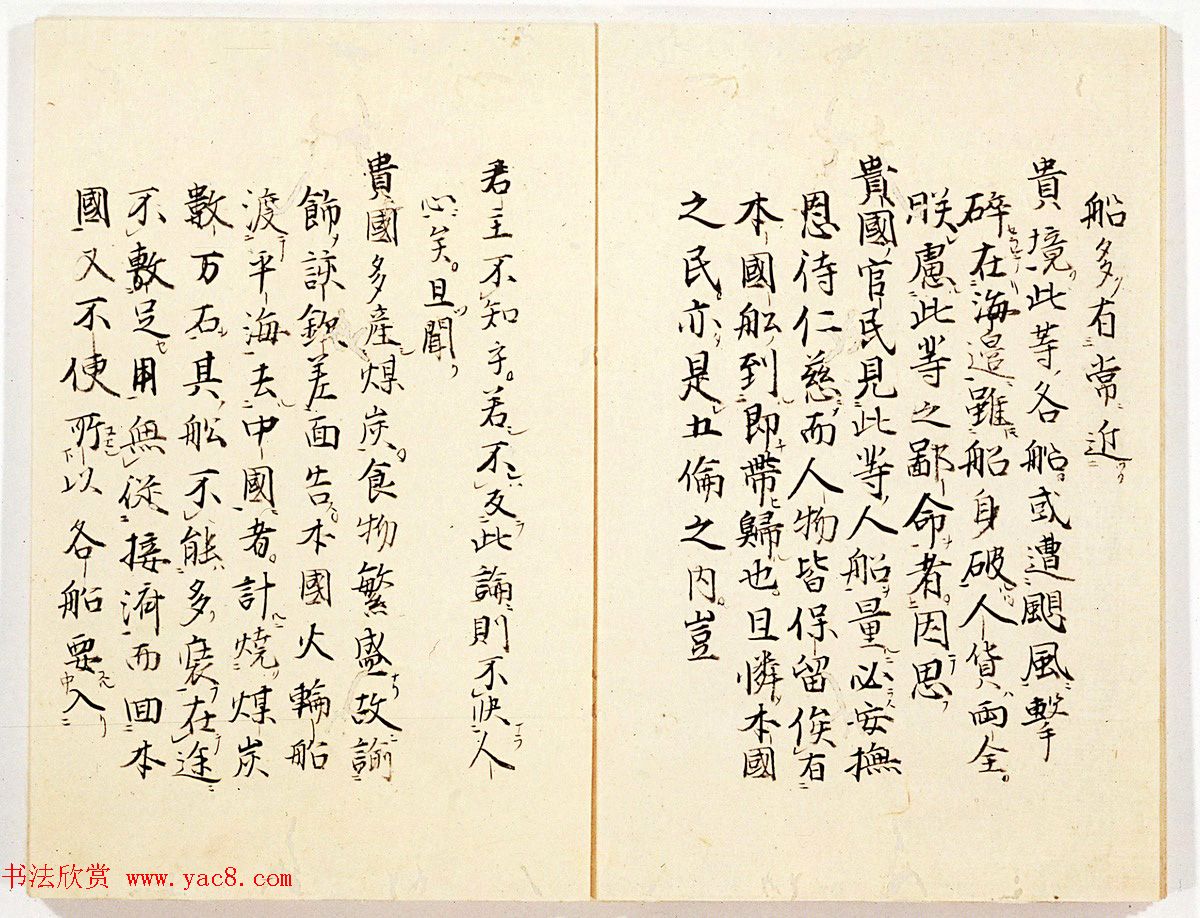 船多有常近
貴境此等各船或遭颶風擊
碎在海邉雖船身破人貨両全
朕慮此等之鄙命者因思
貴國官民見此等人船量必安撫
恩待仁慈而人物皆保留俟有
本國舩到即帶歸也且憐本國
之民亦是五倫之内豈
君主不知乎若不反此論則不快人
心矣且聞
貴國多產煤炭食物繁盛故諭
飾諛欽差面告本國火輪船
渡平海去中國者計燒煤炭
數万石其舩不能多裝在途
不敷足用無從接濟而回本
國又不便所以各船要入
书法欣赏 www.yac8.com